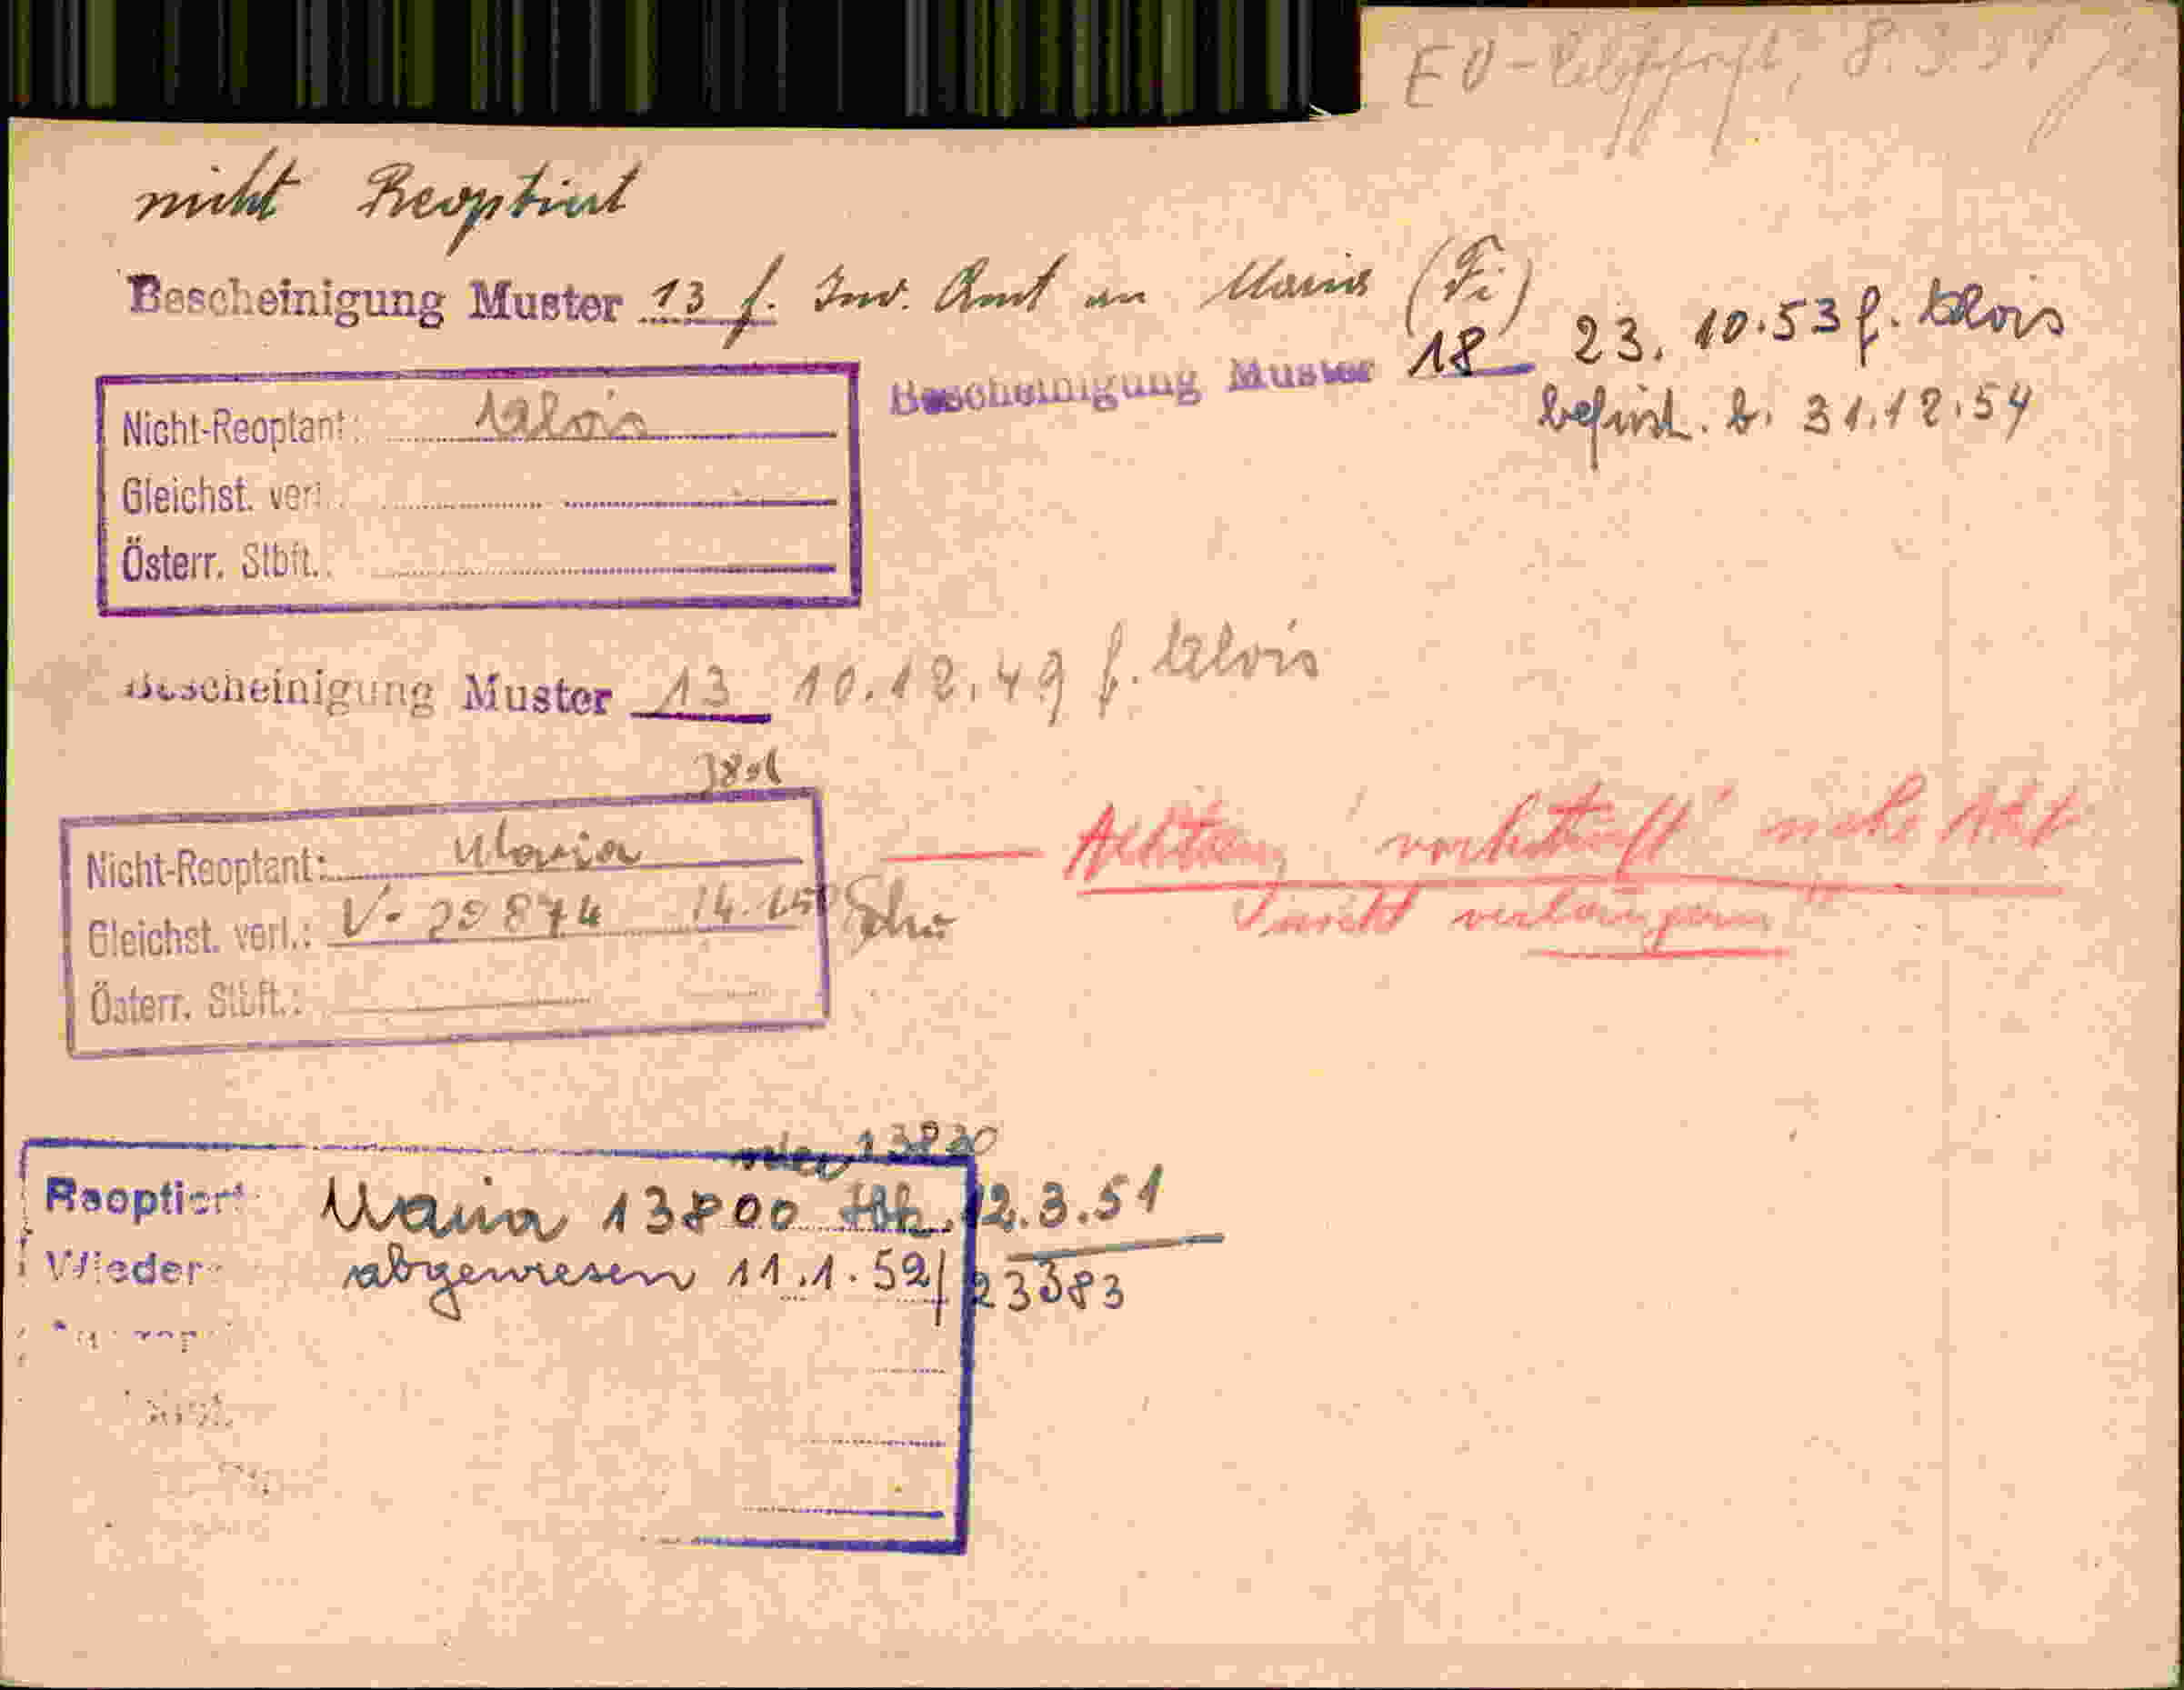 EV- 8.3.51
nicht Reoptiert
Bescheinigung Muster 13 f. Inv. Amt an Maria (Fi)
Bescheinigung Muster 18 23. 10. 53 f. Alois
befrist. b. 31.12.54
Nicht-Reoptant: Alois
Gleichst. verl.:
Österr. Stbft.:
Bescheinigung Muster 13 10.12.49 f. Alois
Nicht-Reoptant: Maria
Gleichst. verl.: V-
Österr. Stbft.:
Achtung nicht
nicht verlängern"
13820
Reoptiert Maria 13800 12.3.51
Wieder abgewiesen 11.1.52/23383